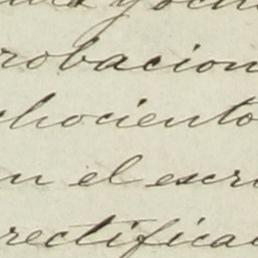 y ochoc
robacion
chociento
n el escri
rectifica